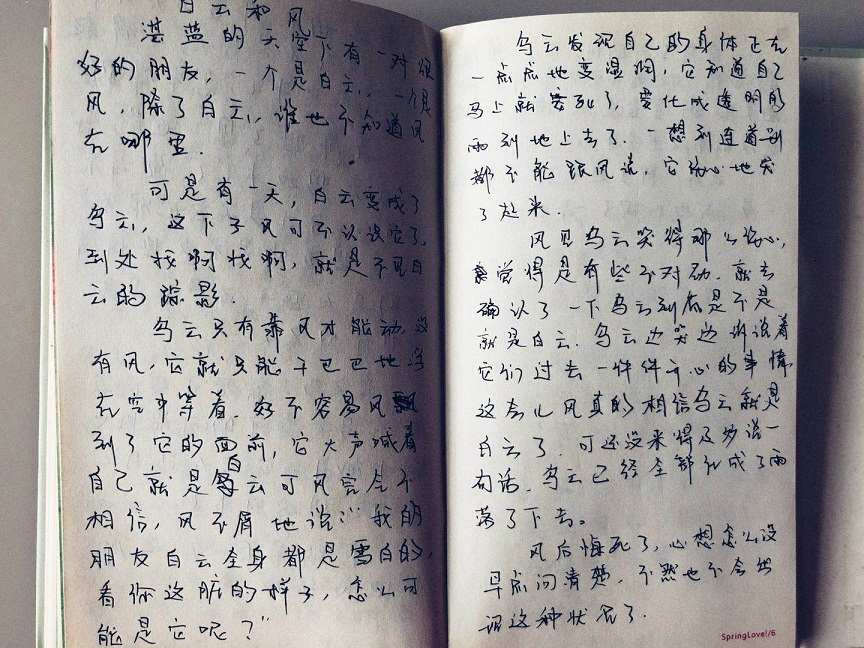 白云和风
湛蓝的天空下有一对很
好的朋友，一个是白云，一个是
风，除了白云，谁也不知道风
在哪里.
可是有一天，白云变成了
乌云，这下子风可不认识它了，
到处找啊找啊，就是不见白
云的踪影.
乌云只有靠风才能动，没
有风，它就只能干巴巴地浮
在空中等着. 好不容易风飘
到了它的面前，它大声喊着
自己就是白云可风完全不
相信，风不屑地说：“我的
朋友白云全身都是雪白的，
看你这脏的样子，怎么可
能是它呢？”
乌云发现自己的身体正在
一点点地变湿润，它知道自己
马上就要死了，要化成透明的
雨到地上去了. 一想到连道别
都不能跟风说，它伤心地哭
了起来.
风见乌云哭得那么伤心，
觉得是有些不对劲. 就去
确认了一下乌云到底是不是
就是白云. 乌云边哭边诉说着
它们过去一件件开心的事情
这会儿风真的相信乌云就是
白云了. 可还没来得及说一
句话，乌云已经全部化成了雨
落了下去。
风后悔死了，心想怎么没
早点问清楚，不然也不会出
现这种状况了.
SpringLove!/6